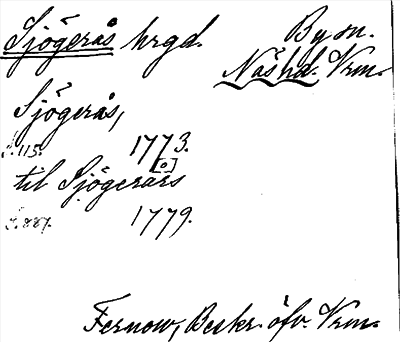 Sjögerås hrgd. By sn.
Näs hd. Vrm.
Sjögerås,
S. 115. 1773.
[o]
til Sjögerårs
S. 887. 1779.
Fernow, Beskr. öfv. Vrm.